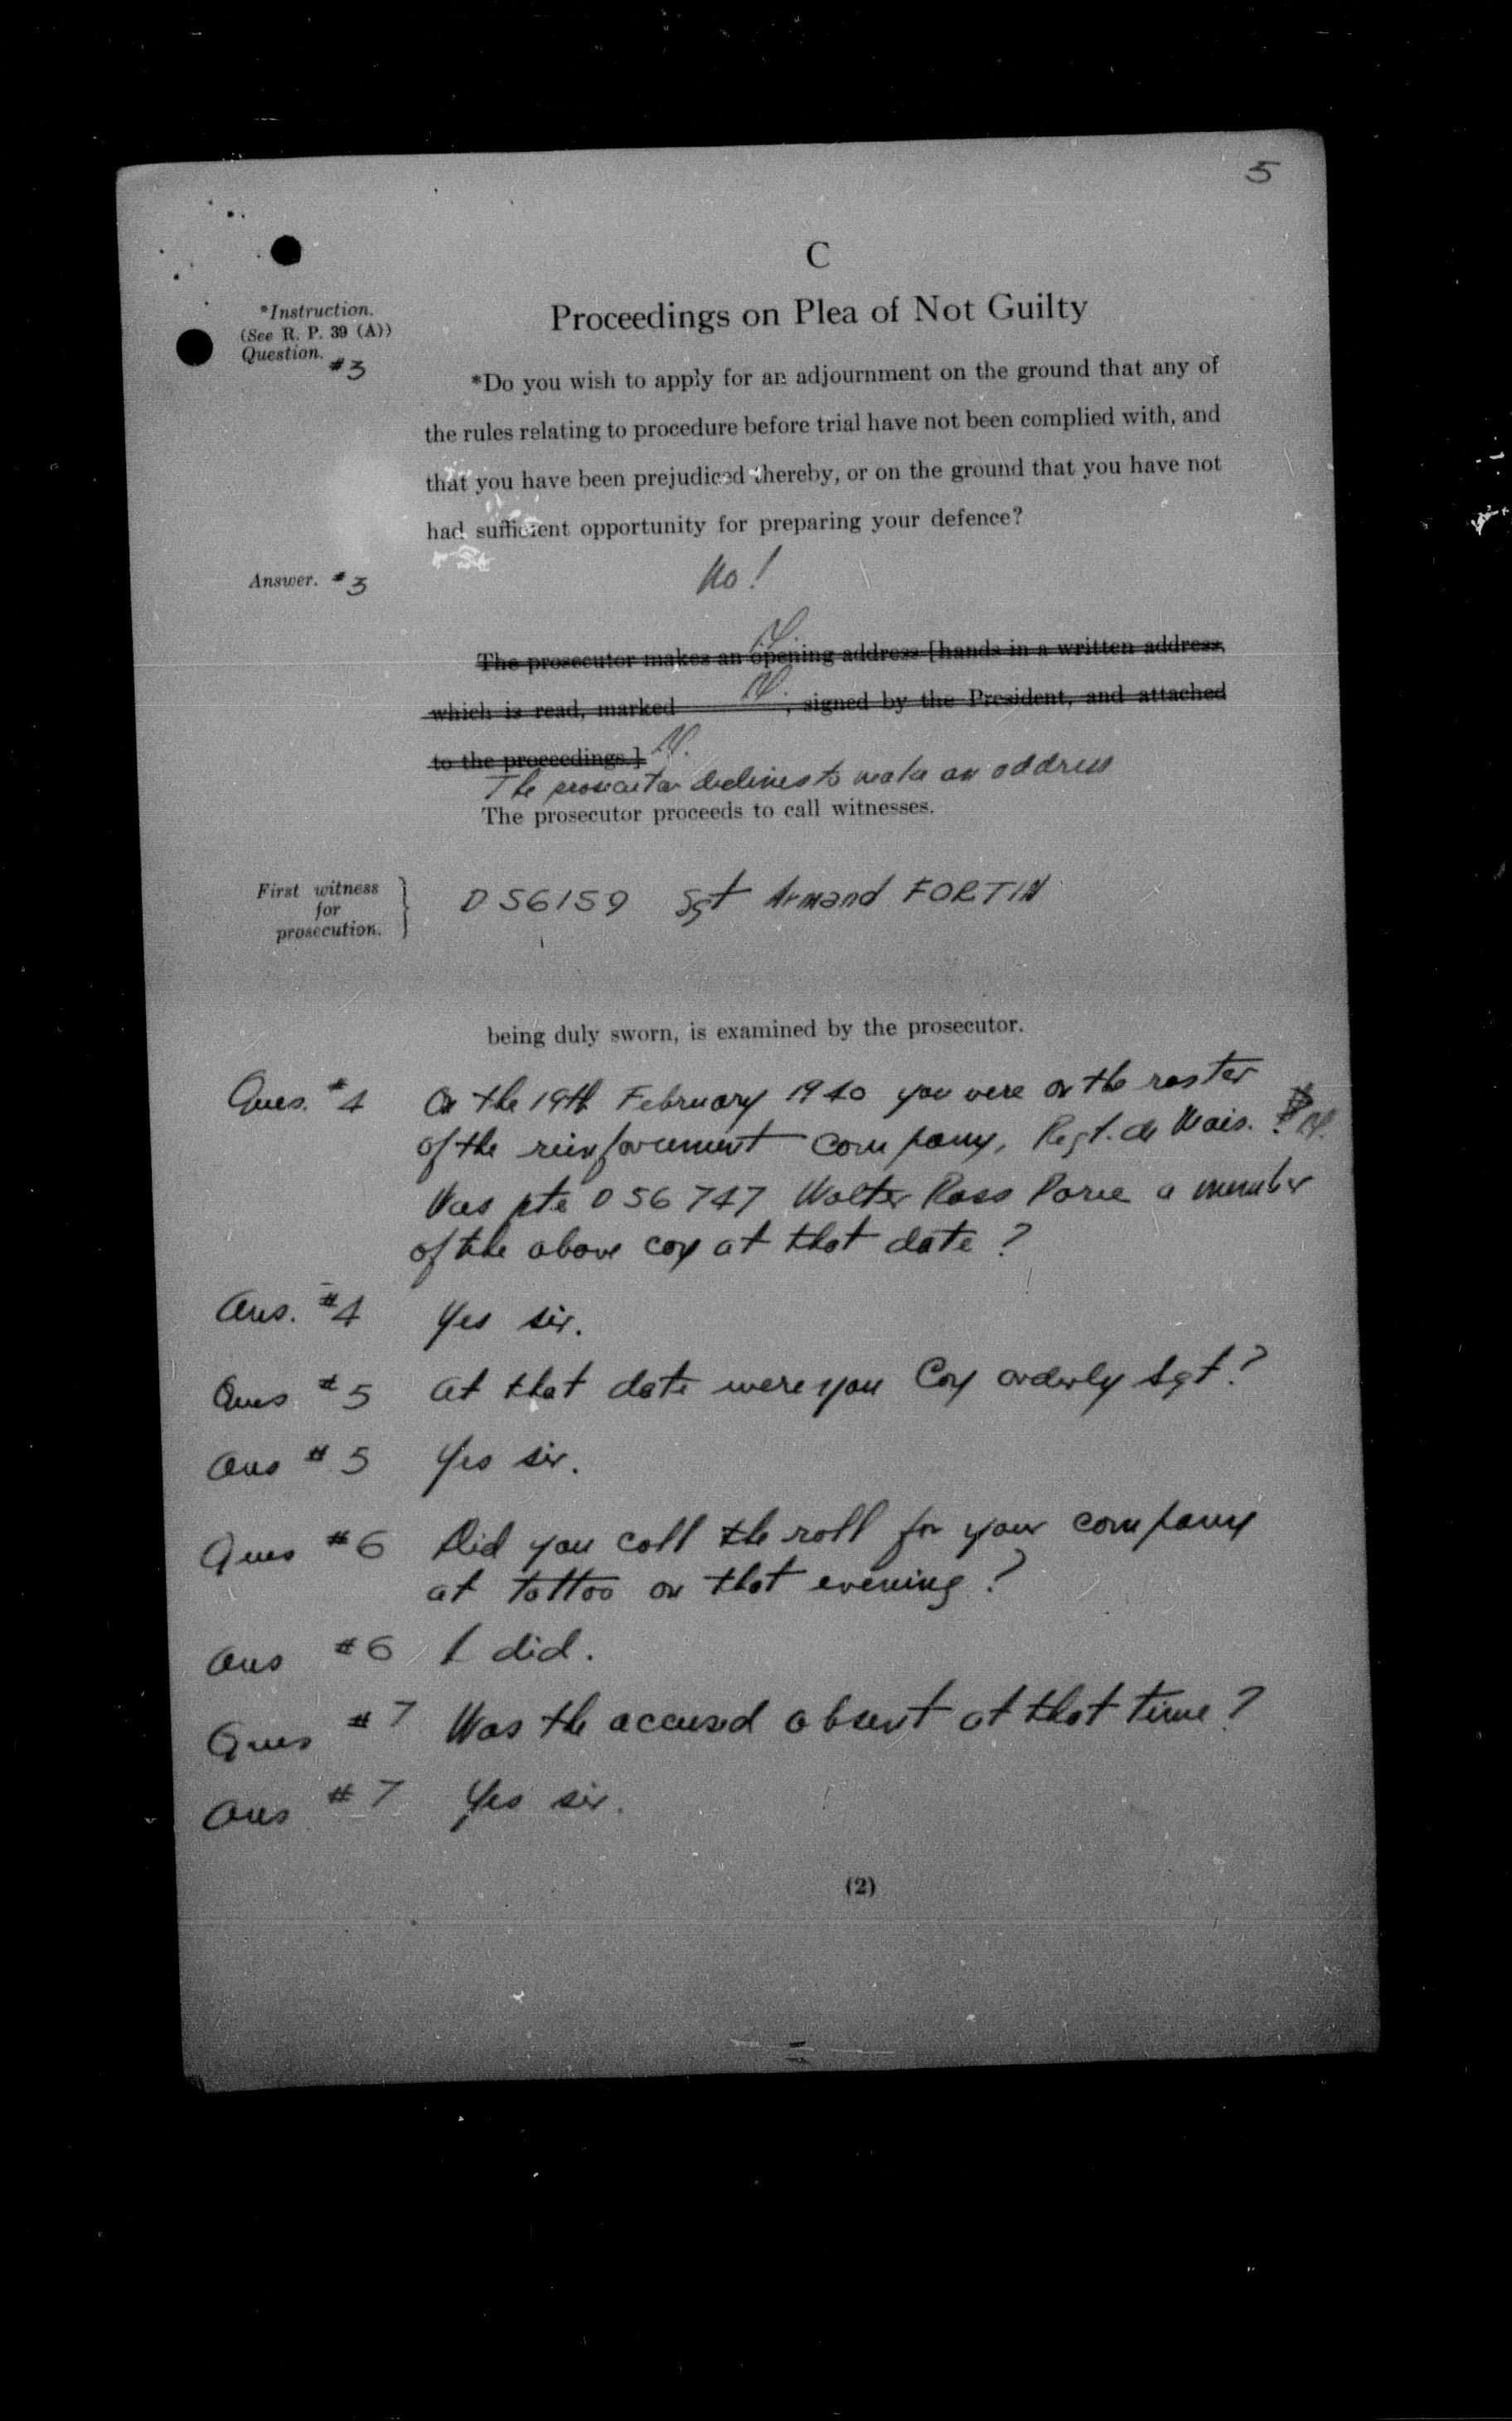 5
C
Proceedings on Plea of Not Guilty
*Instruction.
(See R. P. 39 (A))
Question. #3
*Do you wish to apply for an adjournment on the ground that any of
the rules relating to procedure before trial have not been complied with, and
that you have been prejudiced thereby, or on the ground that you have not
had sufficient opportunity for preparing your defence?
Answer. #3
No!
The prosecutor makes an opening address [hands in a written address,
which is read, marked , signed by the President, and attached
to the proceedings.]
The prosecutor declines to make an address
The prosecutor proceeds to call witnesses.
First witness
for
prosecution.
D 56159 Sgt Armand FORTIN
being duly sworn, is examined by the prosecutor.
Ques. #4 On the 19th February 1940 you were on the roster
of the reinforcement company, Regt. de Mais.
Was pte D 56747 Walter Ross a member
of the above coy at that date?
Ans. #4 Yes sir.
Ques #5 At that date were you Coy orderly Sgt?
Ans #5 Yes sir.
Ques #6 Did you call the roll for your company
at tattoo on that evening?
Ans #6 I did.
Ques #7 Was the accused absent at that time?
Ans #7 Yes sir.
(2)